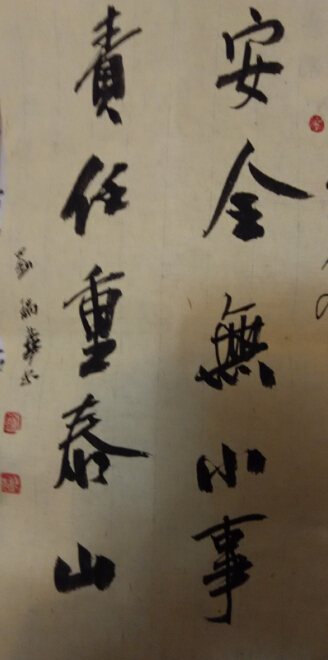 安全無小事
責任重泰山